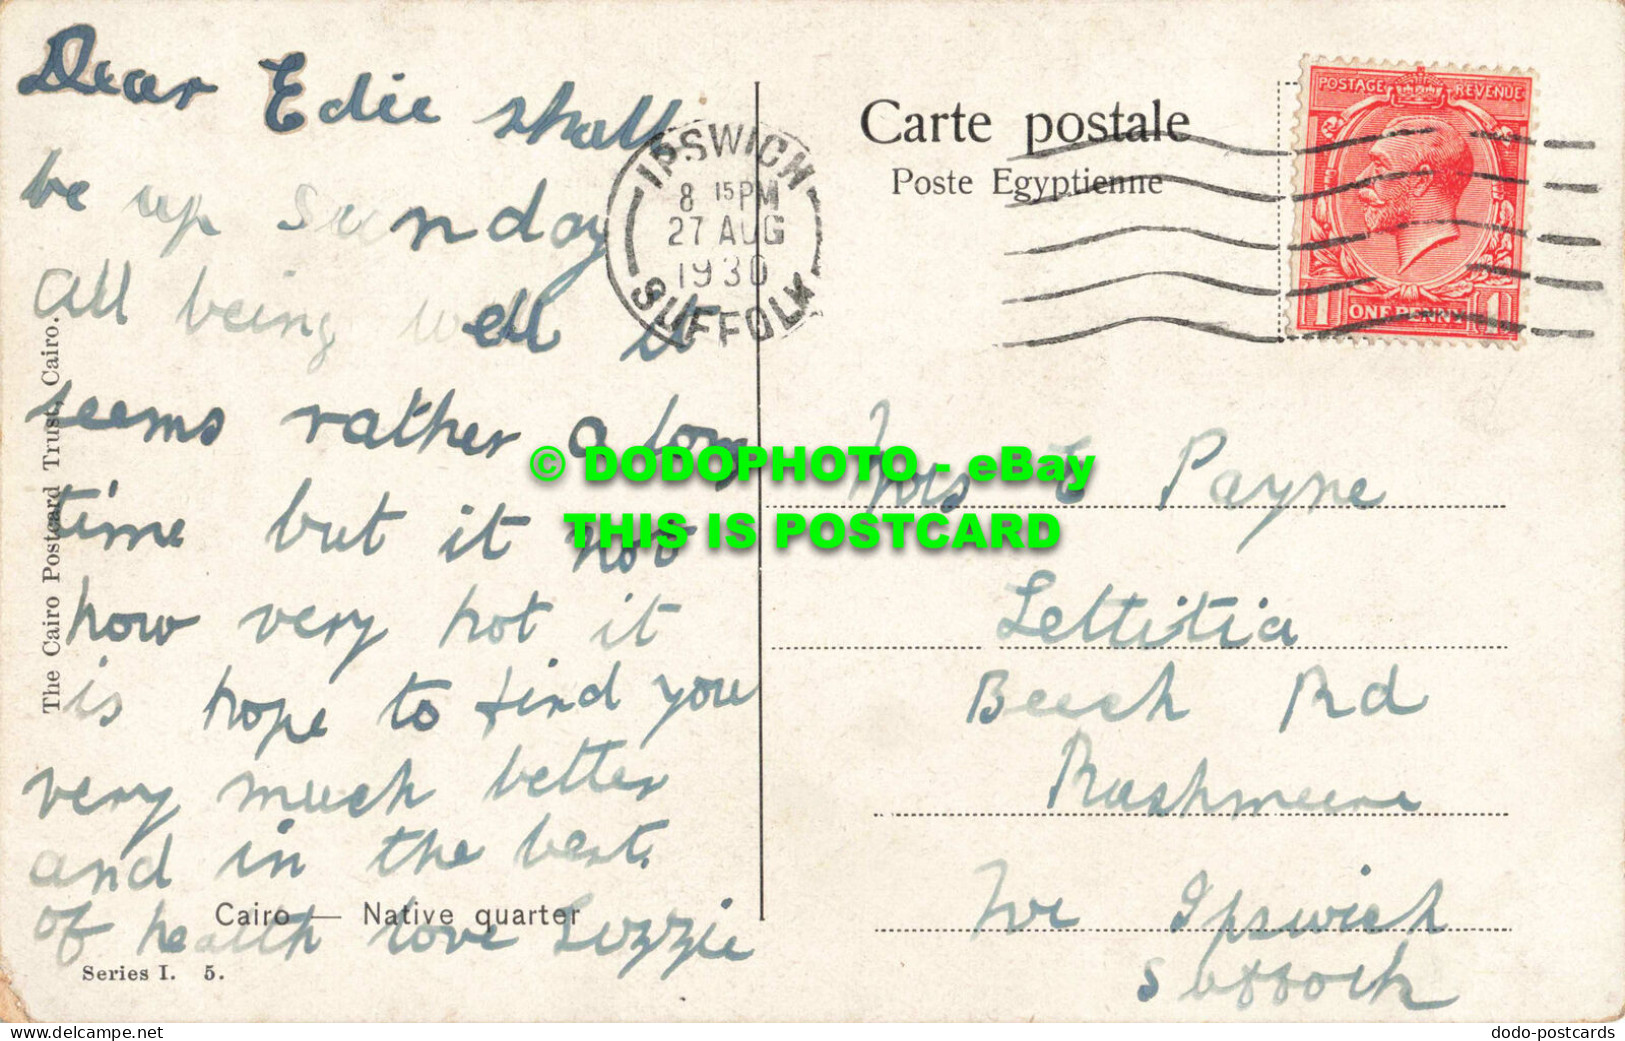 Dear Edie shall
be up Sunday
all being well it
seems rather a long
time but it now
how very hot it
is hope to find you
very much better
and in the best
of health love Lizzie
The Cairo Postcard Trust, Cairo.
Cairo — Native quarter
Series I. 5.
IPSWICH
8 15 PM
27 AUG
1930
SUFFOLK
Carte postale
Poste Egyptienne
POSTAGE REVENUE
1 ONE PENNY 1
© DODOPHOTO - eBay
THIS IS POSTCARD
Mrs E Payne
Lettitia
Beech Rd
Rushmere
Nr Ipswich
Suffolk
dodo-postcards